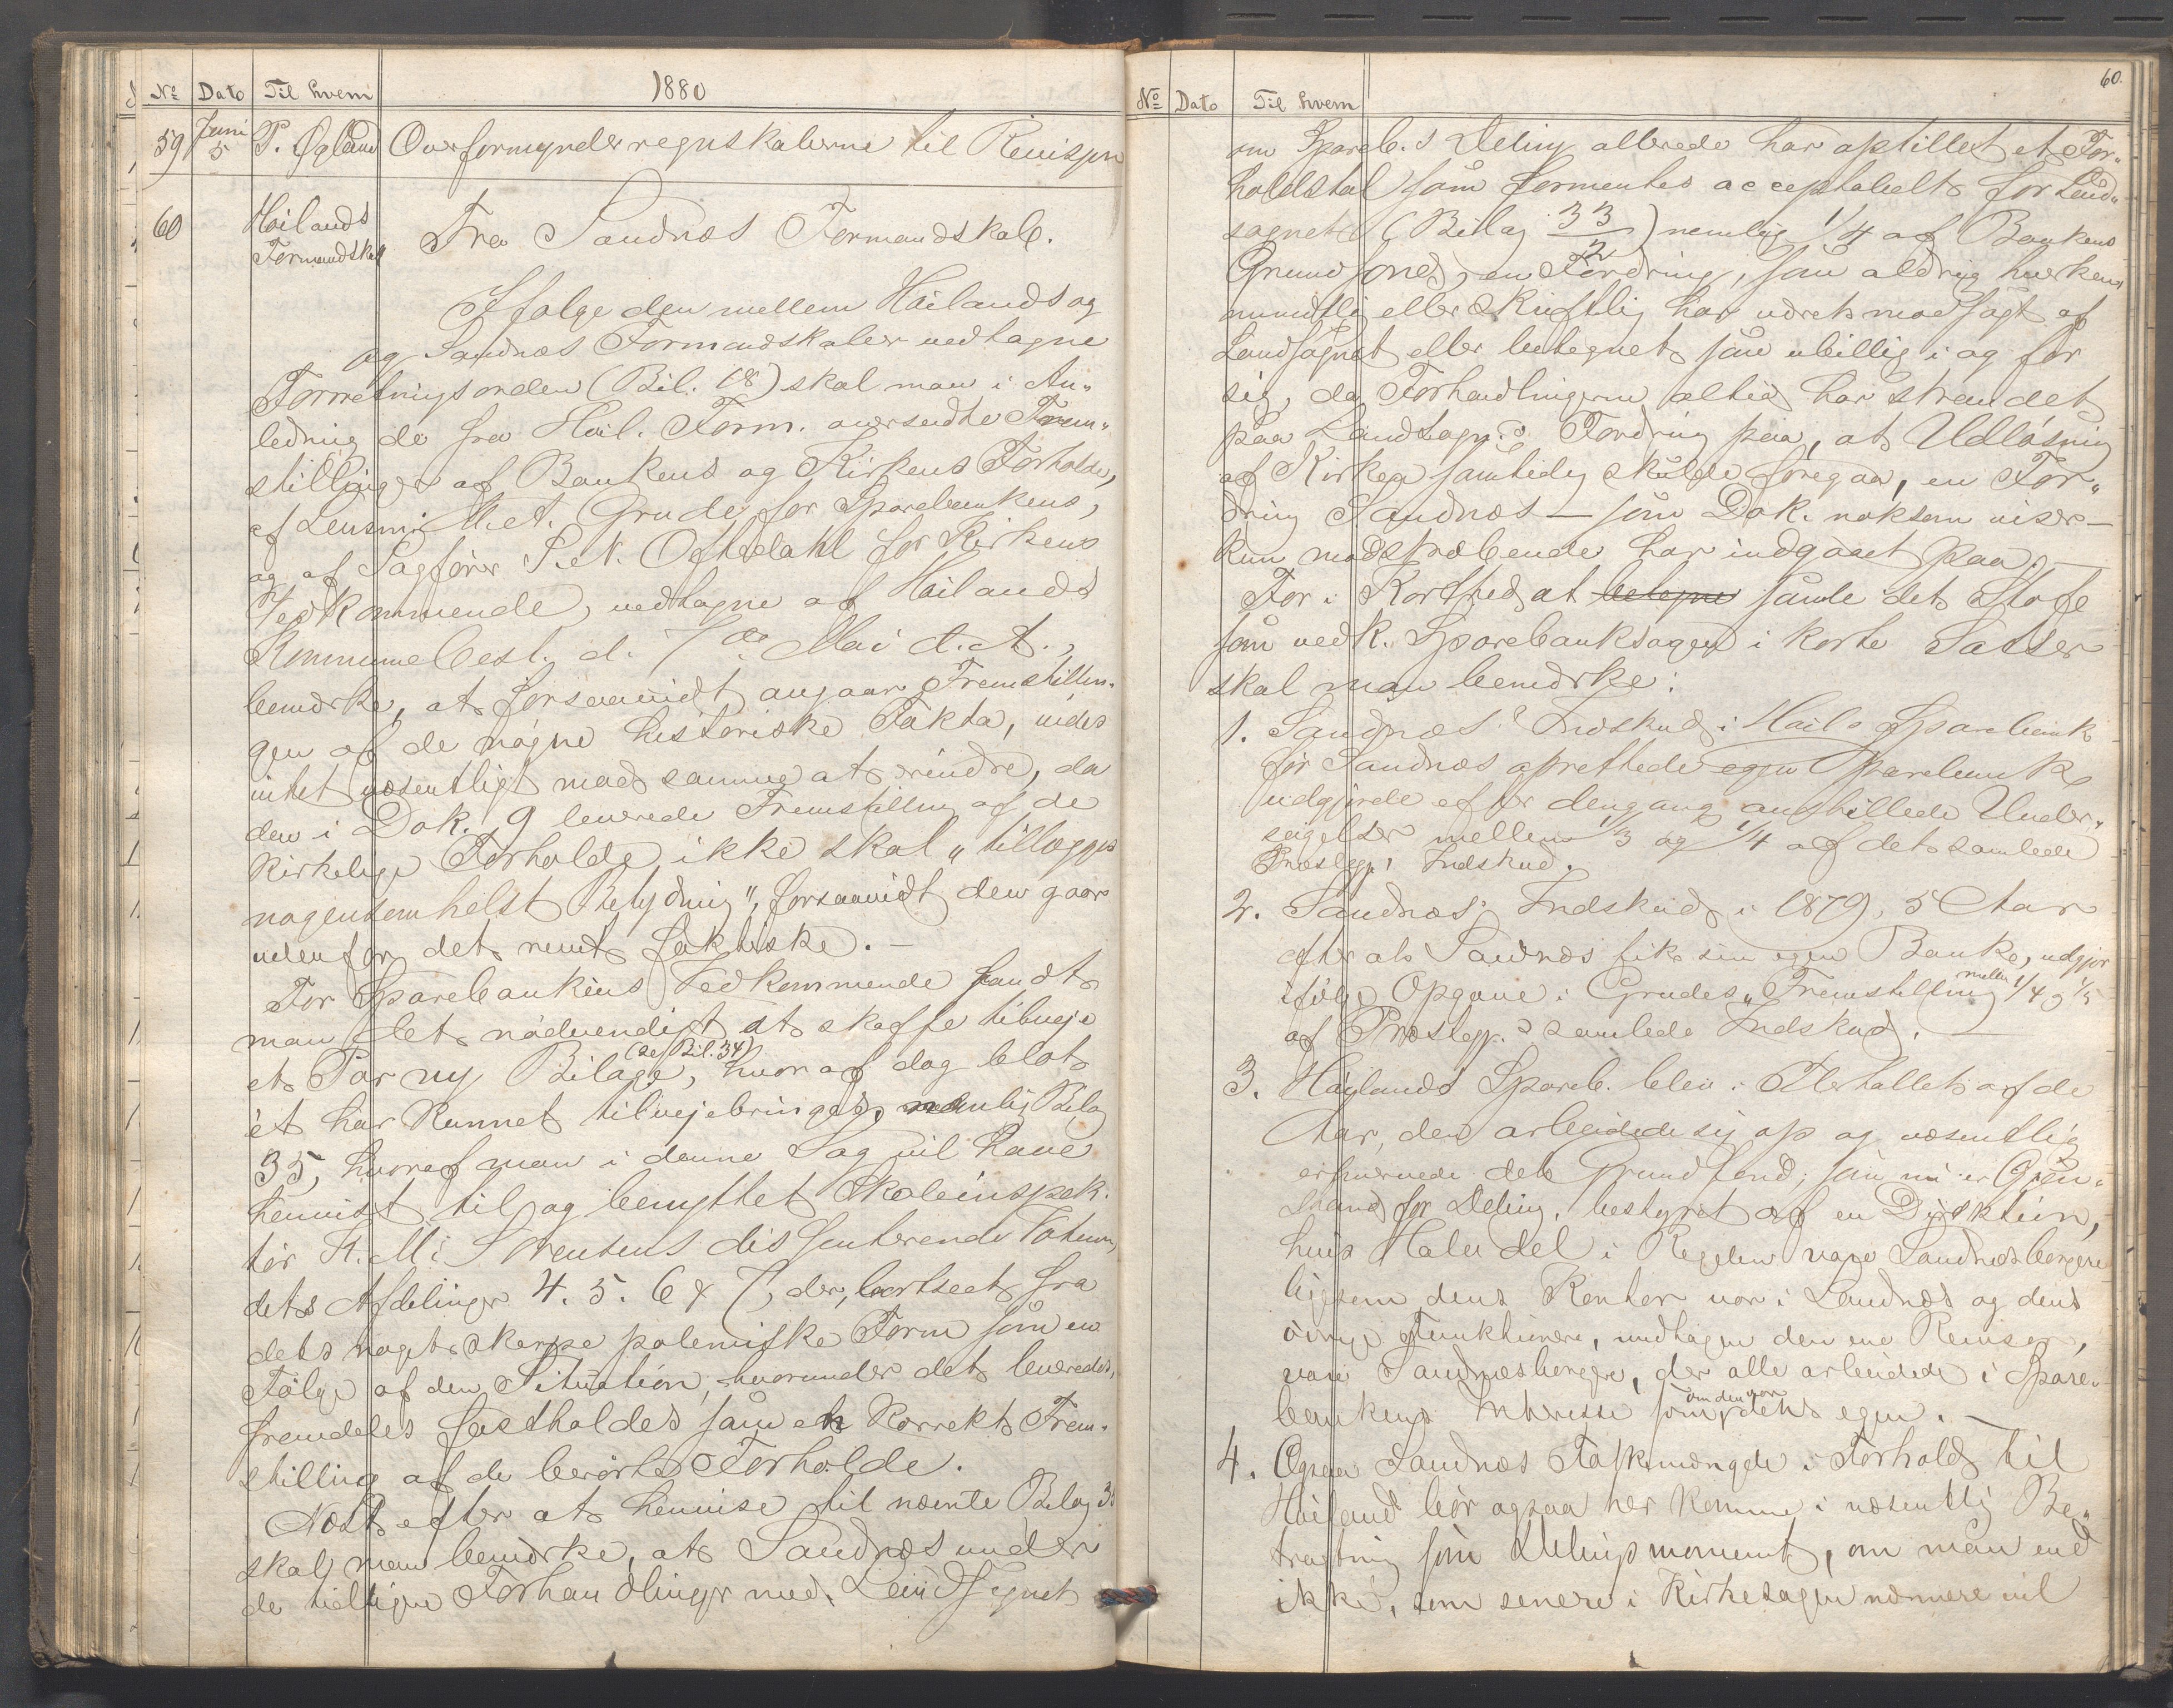 1880
No Dato Til hvem
59 Juni 5 P. Øgland Overformynderregnskaberne til Revisjon
60 Høilands Formandskab
Fra Sandnæs Formandskab.
Ifølge den mellem Høilands og
og Sandnæs Formandskaber vedtagne
Forretningsorden (Bil. 18) skal man i An-
ledning de fra Høil. Form. oversendte Frem-
stillinger af Bankens og Kirkens Forholde,
af Lensm. Grude for Sparebankens,
og af Sagfører Oftedahl for Kirkens
Vedkommende, vedtagne af Høilands
Kommunebest. d. 7de Mai d. A.,
bemærke, at forsaavidt angaar Fremstillin-
gen af de nøgne historiske Fakta, vides
intet væsentligt mod samme at erindre, da
den i Dok. 9 leverede Fremstilling af de
kirkelige Forholde ikke skal "tillægges
nogensomhelst Betydning", forsaavidt den gaar
udenfor det rent faktiske. —
For Sparebankens Vedkommende fandt
man det nødvendigt at skaffe tilveje
et Par ny Bilage (se Bil. 34), hvoraf dog blot
ét har kunnet tilvejebringes, nemlig Bilag
35, hvoraf man i denne Sag vil have
henvist til og benyttet Skoleinspek-
tør Sørensens dissenterende Votum,
dets Afdelinger 4. 5. 6 & 7, der, bortseet fra
dets noget skarpe polemiske Form som en
Følge af den Situation, hvorunder det leveredes,
fremdeles fastholdes som en korrekt Frem-
stilling af de berørte Forholde.
Næst efter at henvise til nævnte Bilag 35
skal man bemærke, at Sandnæs under
de tidligere Forhandlinger med Landsognet
60.
No Dato Til hvem
om Spareb.s Deling allerede har opstillet et For-
holdstal som formentes acceptabelt for Land-
sognet (Bilag 33/2) nemlig 1/4 af Bankens
Grundfond, en Fordring, som aldrig hverken
mundtlig eller skriftlig har været modsagt af
Landsognet eller betegnet som ubillig i og for
sig, da Forhandlingerne altid har strandet
paa Landsogn.s Fordring paa, at Udløsning
af Kirken samtidig skulde foregaa, en For-
dring Sandnæs — som Dok. noksom viser —
kun modstræbende har indgaaet paa. —
For i Korthed at betegne samle det Stof
som vedk. Sparebanksagen i korte Satser
skal man bemærke:
1. Sandnæs' Indskud i Høil. Sparebank
før Sandnæs oprettede egen Sparebank
udgjorde efter dengang anstillede Under-
søgelser mellem 1/3 og 1/4 af det samlede
Præstegj. Indskud.
2. Sandnæs' Indskud i 1879, 5 Aar
efter at Sandnæs fik sin egen Bank, udgjør
ifølge Opgave i Grudes "Fremstilling" mellem 1/4 og 1/5
af Præstegj.s samlede Indskud. —
3. Høilands Spareb. blev i Flertallet af de
Aar, den arbeidede sig op og væsentlig
erhvervede det Grundfond, som nu er Gjen-
stand for Deling, bestyret af en Direktion,
hvis Halvdel i Regelen var Sandnæsborgere
ligesom dens Kontor var i Sandnæs og dens
øvrige Funktionære, undtagen den ene Revisor,
vare Sandnæsborgere, der alle arbeidede i Spare-
bankens Interesse som om den var dets egen. —
4. Ogsaa Sandnæs Folkemængde i Forhold til
Høiland bør ogsaa her komme i væsentlig Be-
tragtning som Delingsmoment, om man end
ikke, som senere i Kirkesagen nærmere vil